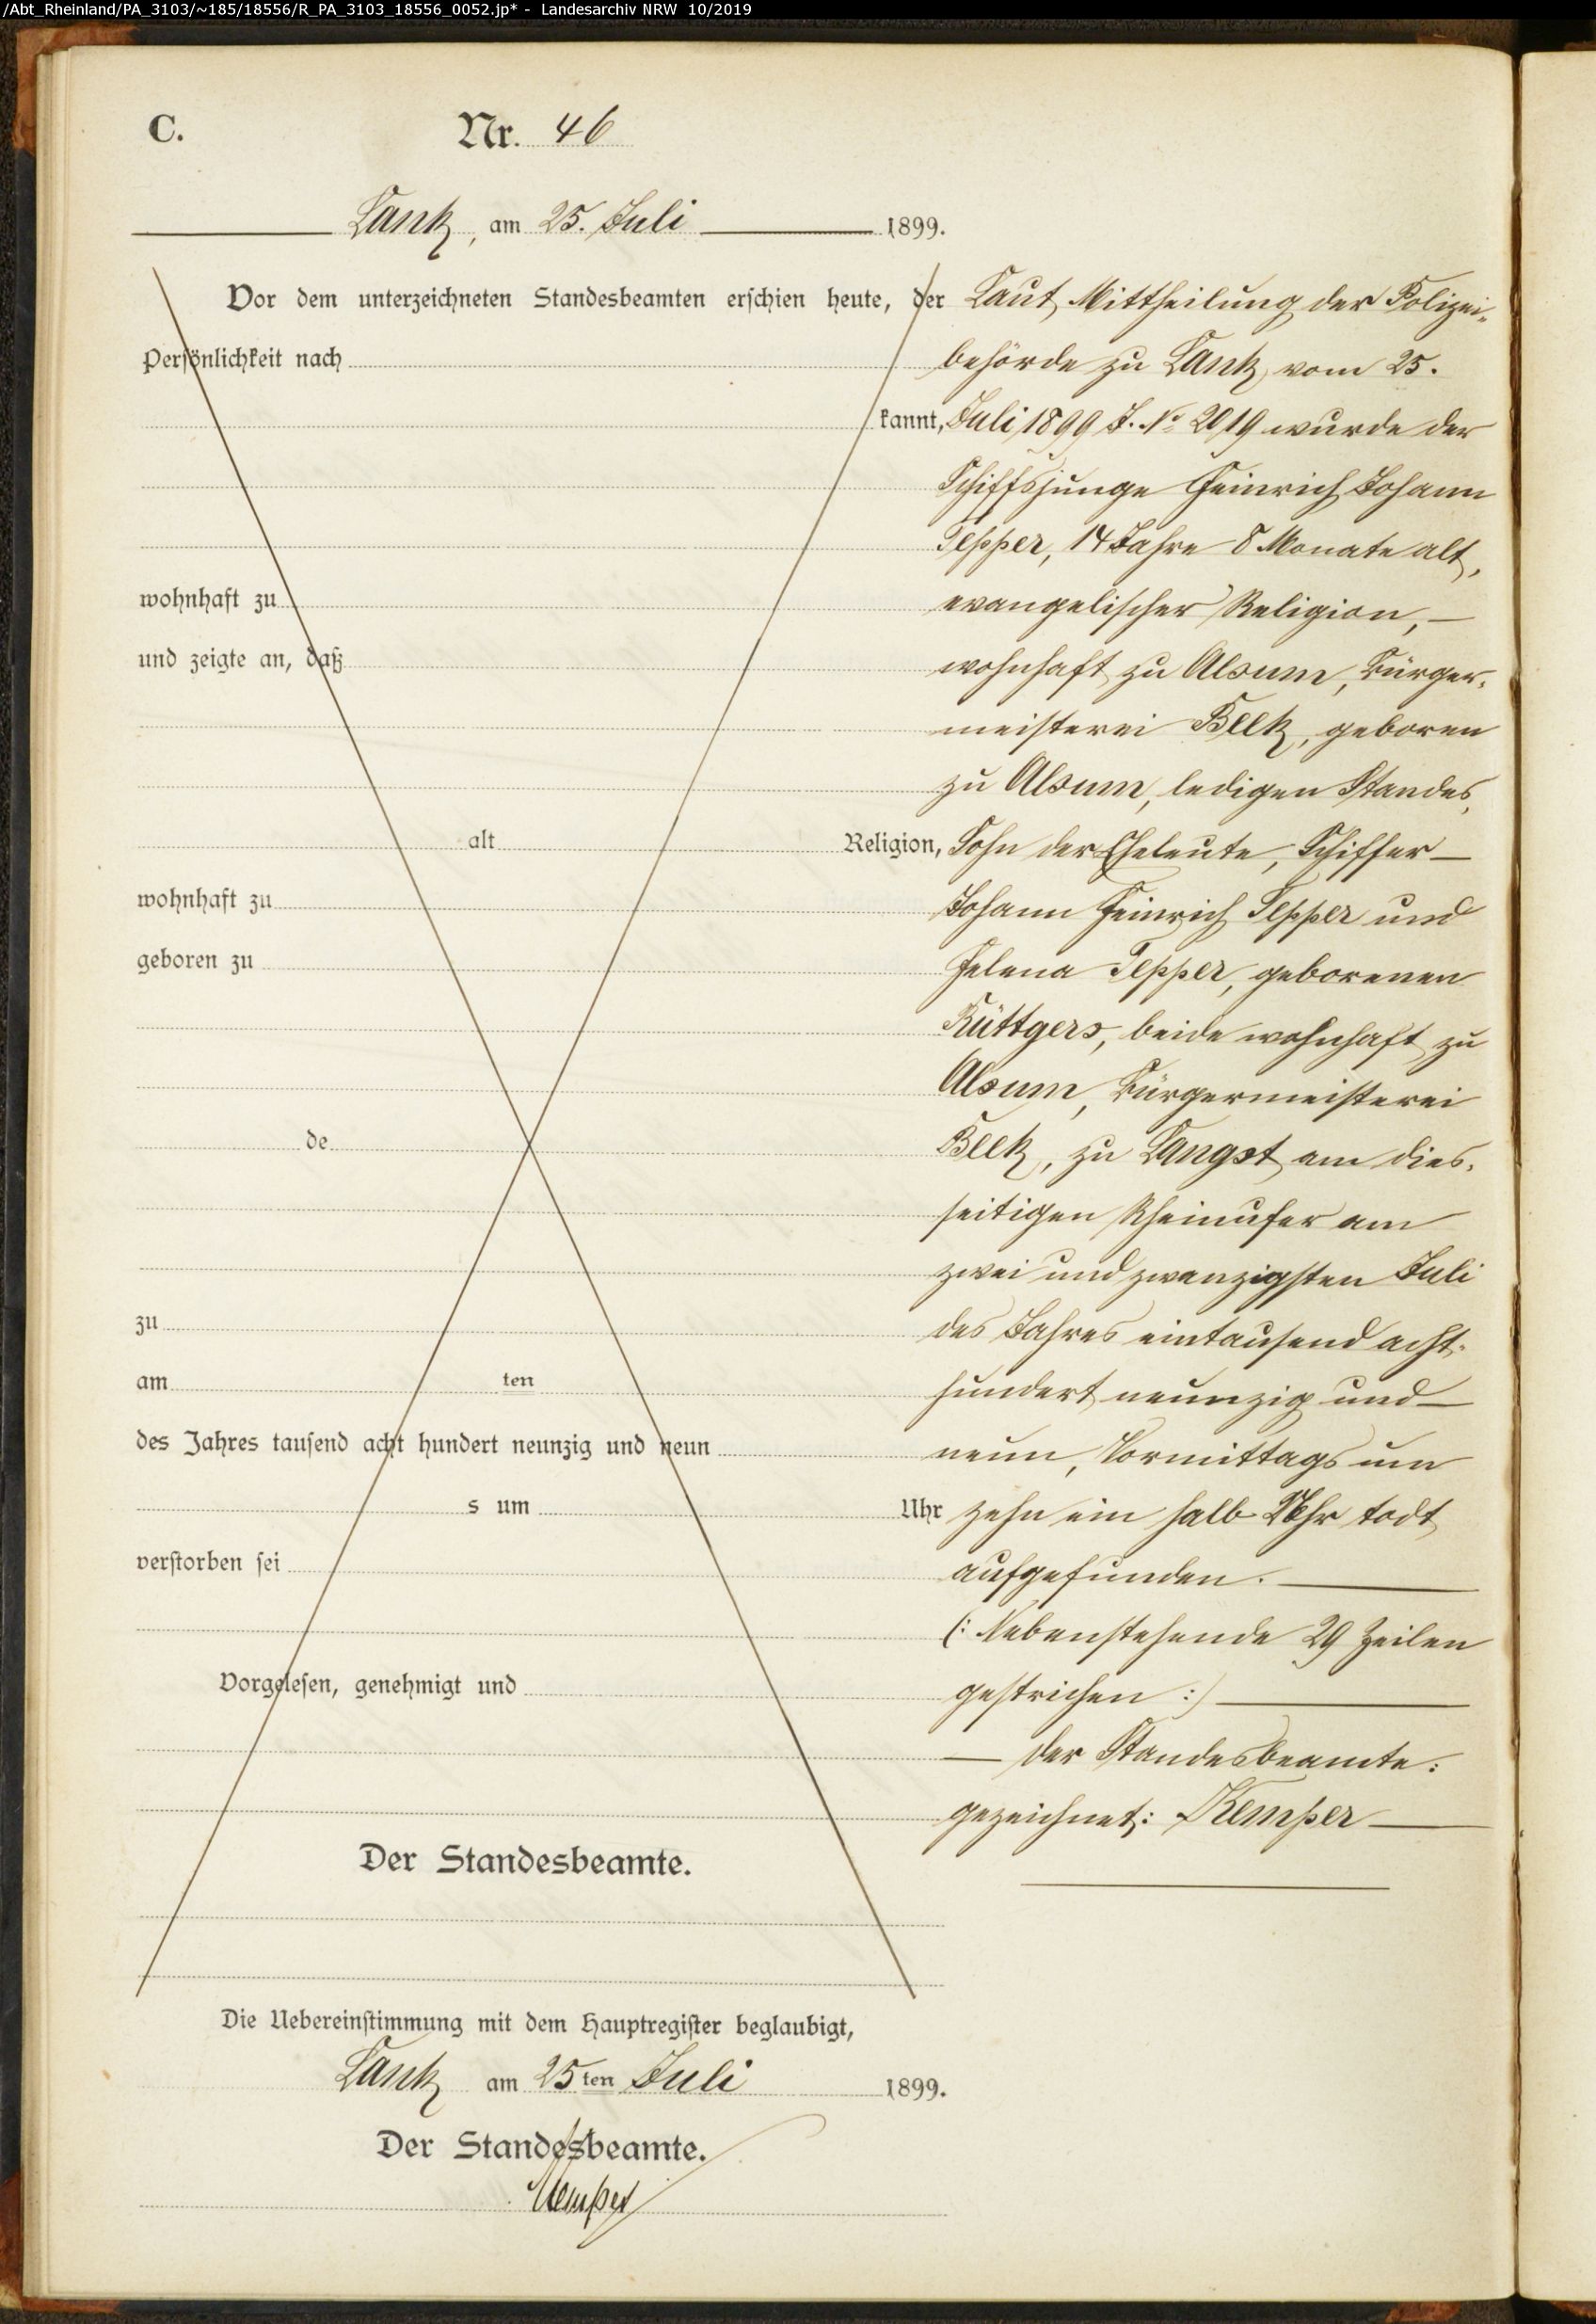 /Abt_Rheinland/PA_3103/~185/18556/R_PA_3103_18556_0052.jp* - Landesarchiv NRW 10/2019
C.
Nr. 46
Lank, am 25. Juli 1899.
Vor dem unterzeichneten Standesbeamten erschien heute, der
Persönlichkeit nach
kannt,
wohnhaft zu
und zeigte an, daß
alt Religion,
wohnhaft zu
geboren zu
de
zu
am ten
des Jahres tausend acht hundert neunzig und neun
s um Uhr
verstorben sei
Vorgelesen, genehmigt und
Der Standesbeamte.
Laut Mittheilung der Polizei-
behörde zu Lank vom 25.
Juli 1899 J. No 2019 wurde der
Schiffsjunge Heinrich Johann
Tepper, 14 Jahre 8 Monate alt,
evangelischer Religion, —
wohnhaft zu Alsum, Bürger-
meisterei Beek, geboren
zu Alsum, ledigen Standes,
Sohn der Eheleute, Schiffer —
Johann Heinrich Tepper und
Helena Tepper, geborenen
Rüttgers, beide wohnhaft zu
Alsum, Bürgermeisterei
Beek, zu Langst am dies-
seitigen Rheinufer am
zwei und zwanzigsten Juli
des Jahres eintausend acht-
hundert neunzig und —
neun, Vormittags um
zehn ein halb Uhr todt
aufgefunden. —
(: Nebenstehende 29 Zeilen
gestrichen :) —
— Der Standesbeamte:
gezeichnet: Kemper —
Die Uebereinstimmung mit dem Hauptregister beglaubigt,
Lank am 25ten Juli 1899.
Der Standesbeamte.
Kemper